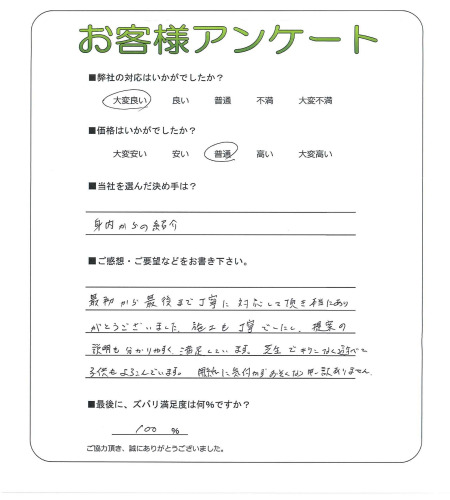 お客様アンケート
■弊社の対応はいかがでしたか？
大変良い 良い 普通 不満 大変不満
■価格はいかがでしたか？
大変安い 安い 普通 高い 大変高い
■当社を選んだ決め手は？
身内からの紹介
■ご感想・ご要望などをお書き下さい。
最初から最後まで丁寧に対応して頂き本当にあり
がとうございました。施工も丁寧でしたし、提案の
説明も分かりやすく、満足しています。芝生で
子供もよろこんでいます。 に気付かずおそくなり申し訳ありません。
■最後に、ズバリ満足度は何%ですか？
100 %
ご協力頂き、誠にありがとうございました。